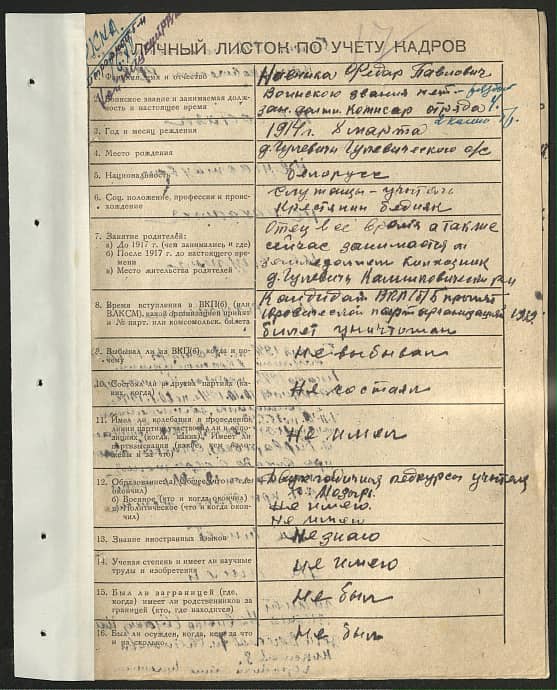 ЛИЧНЫЙ ЛИСТОК ПО УЧЕТУ КАДРОВ
1. Фамилия, имя и отчество
Федар Павлович
2. Воинское звание и занимаемая долж-
ность в настоящее время
Воинского звания нет
зан. долж. Комисар отряда
3. Год и месяц рождения
1914 г. 8 марта
4. Место рождения
д. Гулевичи Гулевического с/с
5. Национальность
белорусс
6. Соц. положение, профессия и проис-
хождение
Служащы - учитель
Крестянин бедняк
7. Занятие родителей:
а) До 1917 г. (чем занимались и где)
б) После 1917 г. до настоящего вре-
мени
в) Место жительства родителей
Отец все время а также
сейчас занимается
земледелием колхозник
д. Гулевичи
8. Время вступления в ВКП(б) (или
ВЛКСМ), какой организацией принят
и № парт. или комсомольск. билета
Кандидат ВКП/б/ принят
парторганизацией
билет уничтожан
9. Выбывал ли из ВКП(б), когда и по-
чему
Не выбывал
10. Состоял ли в других партиях (ка-
ких, когда)
Не состоял
11. Имел ли колебания в проведении
линии партии, участвовал ли в оппо-
зициях (когда, каких). Имеет ли
партвзыскания (какие, кем нало-
жены и за что)
Не имел
12. Образование: а) Общее (что и где
окончил)
б) Военное (что и когда окончил)
в) Политическое (что и когда окон-
чил)
Двухгодичния педкурсы учителя
г. Мозырь.
не имею.
не имею
13. Знание иностранных языков
Не знаю
14. Ученая степень и имеет ли научные
труды и изобретения
не имею
15. Был ли заграницей (где,
когда) имеет ли родственников за
границей (кто, где находится)
Не был
16. Был ли осужден, когда, кем за что
и на сколько
Не был